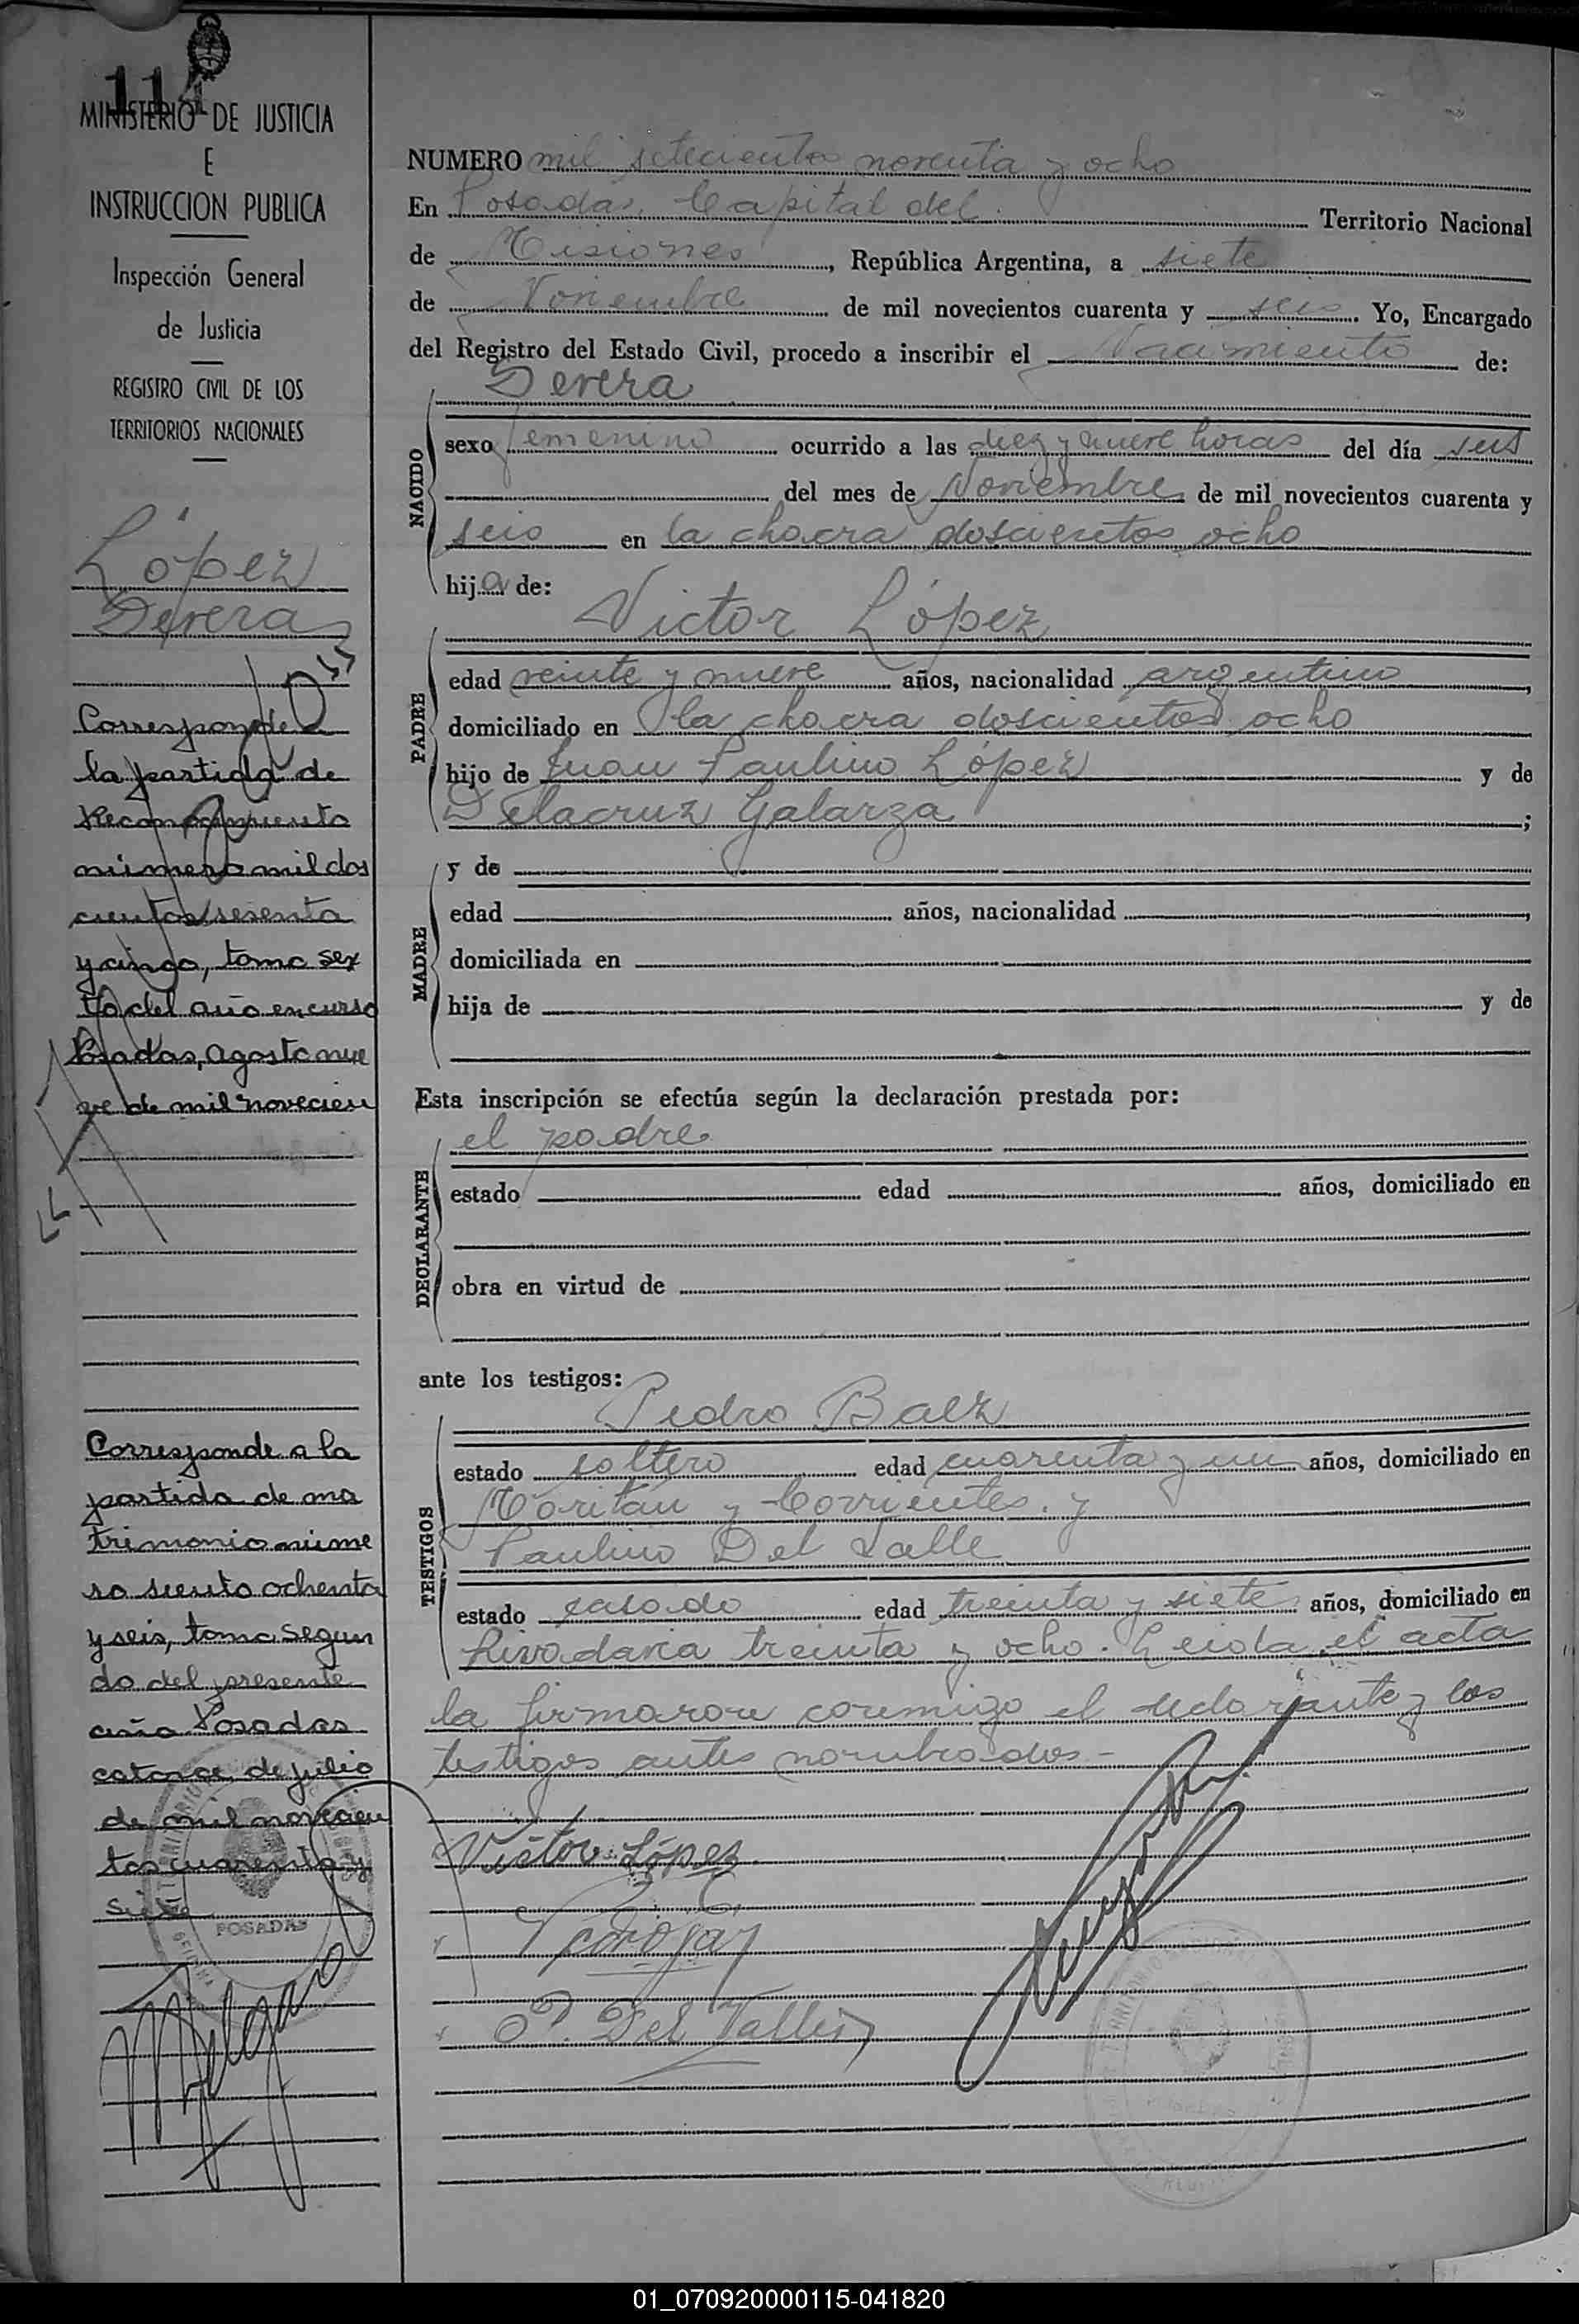 114
MINISTERIO DE JUSTICIA
E
INSTRUCCION PUBLICA
Inspección General
de Justicia
REGISTRO CIVIL DE LOS
TERRITORIOS NACIONALES
López
Severa
Corresponde a
la partida de
Reconocimiento
número mil dos
cientos sesenta
y cinco, tomo sex
to del año en curso
Posadas, Agosto nue
ve de mil novecien
Corresponde a la
partida de ma
trimonio núme
ro ciento ochenta
y seis, tomo segun
do del presente
año Posadas
catorce de julio
de mil novecien
tos cuarenta y
siete
POSADAS
NUMERO mil setecientos noventa y ocho
En Posadas, Capital del Territorio Nacional
de Misiones, República Argentina, a siete
de Noviembre de mil novecientos cuarenta y seis. Yo, Encargado
del Registro del Estado Civil, procedo a inscribir el Nacimiento de:
Severa
NACIDO
sexo femenino ocurrido a las diez y nueve horas del día seis
del mes de Noviembre de mil novecientos cuarenta y
seis en la chacra doscientos ocho
hija de:
Victor López
PADRE
edad veinte y nueve años, nacionalidad argentino,
domiciliado en la chacra doscientos ocho
hijo de Juan Paulino López y de
Delacruz Galarza;
MADRE
y de
edad años, nacionalidad,
domiciliada en
hija de y de
Esta inscripción se efectúa según la declaración prestada por:
el padre
DECLARANTE
estado edad años, domiciliado en
obra en virtud de
ante los testigos:
Pedro Baez
TESTIGOS
estado soltero edad cuarenta y un años, domiciliado en
y Corrientes. y
Paulino Del Valle
estado casado edad treinta y siete años, domiciliado en
Rivadavia treinta y ocho. Leida el acta
la firmaron conmigo el declarante y los
testigos antes nombrados-
Victor López.
P. Del Valle
01_070920000115-041820